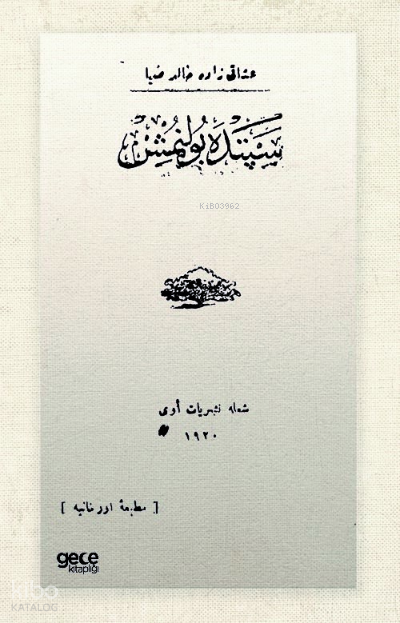 عشاقی زاده خالد ضیا
سپتده بولنمش
KİBO3962
شعله نشریات أوی
١٩٢٠
[ مطبعۀ اورخانیه ]
gece
kitaplığı
kibo
KATALOG